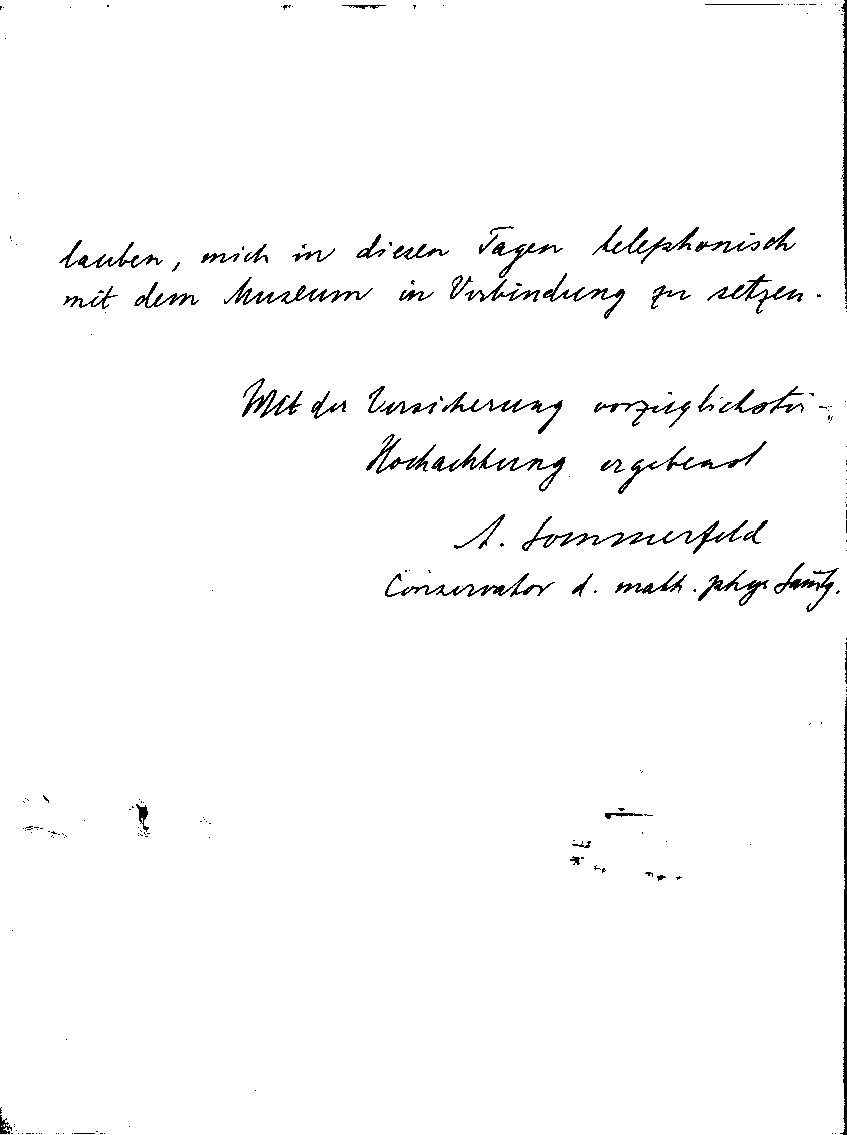 lauben, mich in diesen Tagen telephonisch
mit dem Museum in Verbindung zu setzen.
Mit der Versicherung vorzüglichster
Hochachtung ergebenst
A. Sommerfeld
Conservator d. math. phys. Samlg.